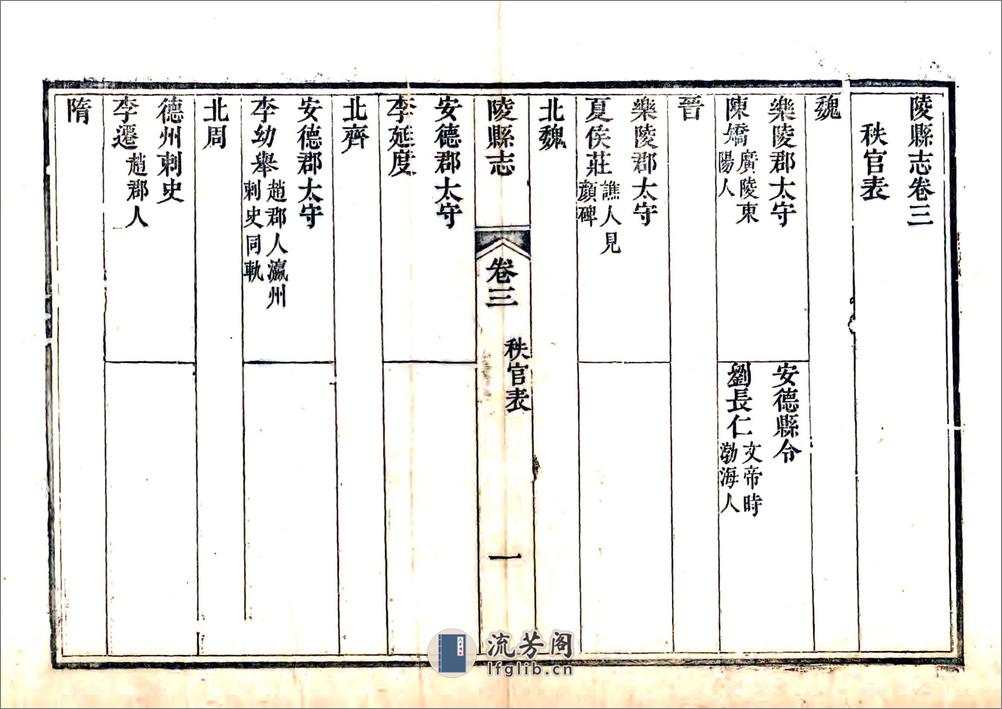 陵縣志卷三
秩官表
魏
樂陵郡太守
安德縣令
陳嬌 廣陵東陽人
劉長仁 文帝時渤海人
晉
樂陵郡太守
夏侯莊 譙人見顏碑
北魏
陵縣志 卷三 秩官表 一
安德郡太守
李延度
北齊
安德郡太守
李幼舉 趙郡人瀛州刺史同軌
北周
德州刺史
李遷 趙郡人
隋
流芳阁
lfglib.cn